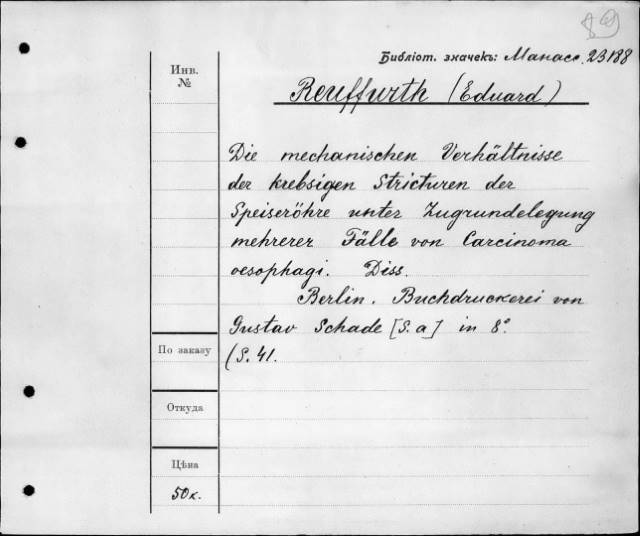 89
Библіот. значекъ: Манасс. 23188
Инв.
№
Reuffurth (Eduard)
Die mechanischen Verhältnisse
der krebsigen Stricturen der
Speiseröhre unter Zugrundelegung
mehrerer Fälle von Carcinoma
oesophagi. Diss.
Berlin. Buchdruckerei von
Gustav Schade [S. a] in 8°
(S. 41.
По заказу
Откуда
Цѣна
50к.